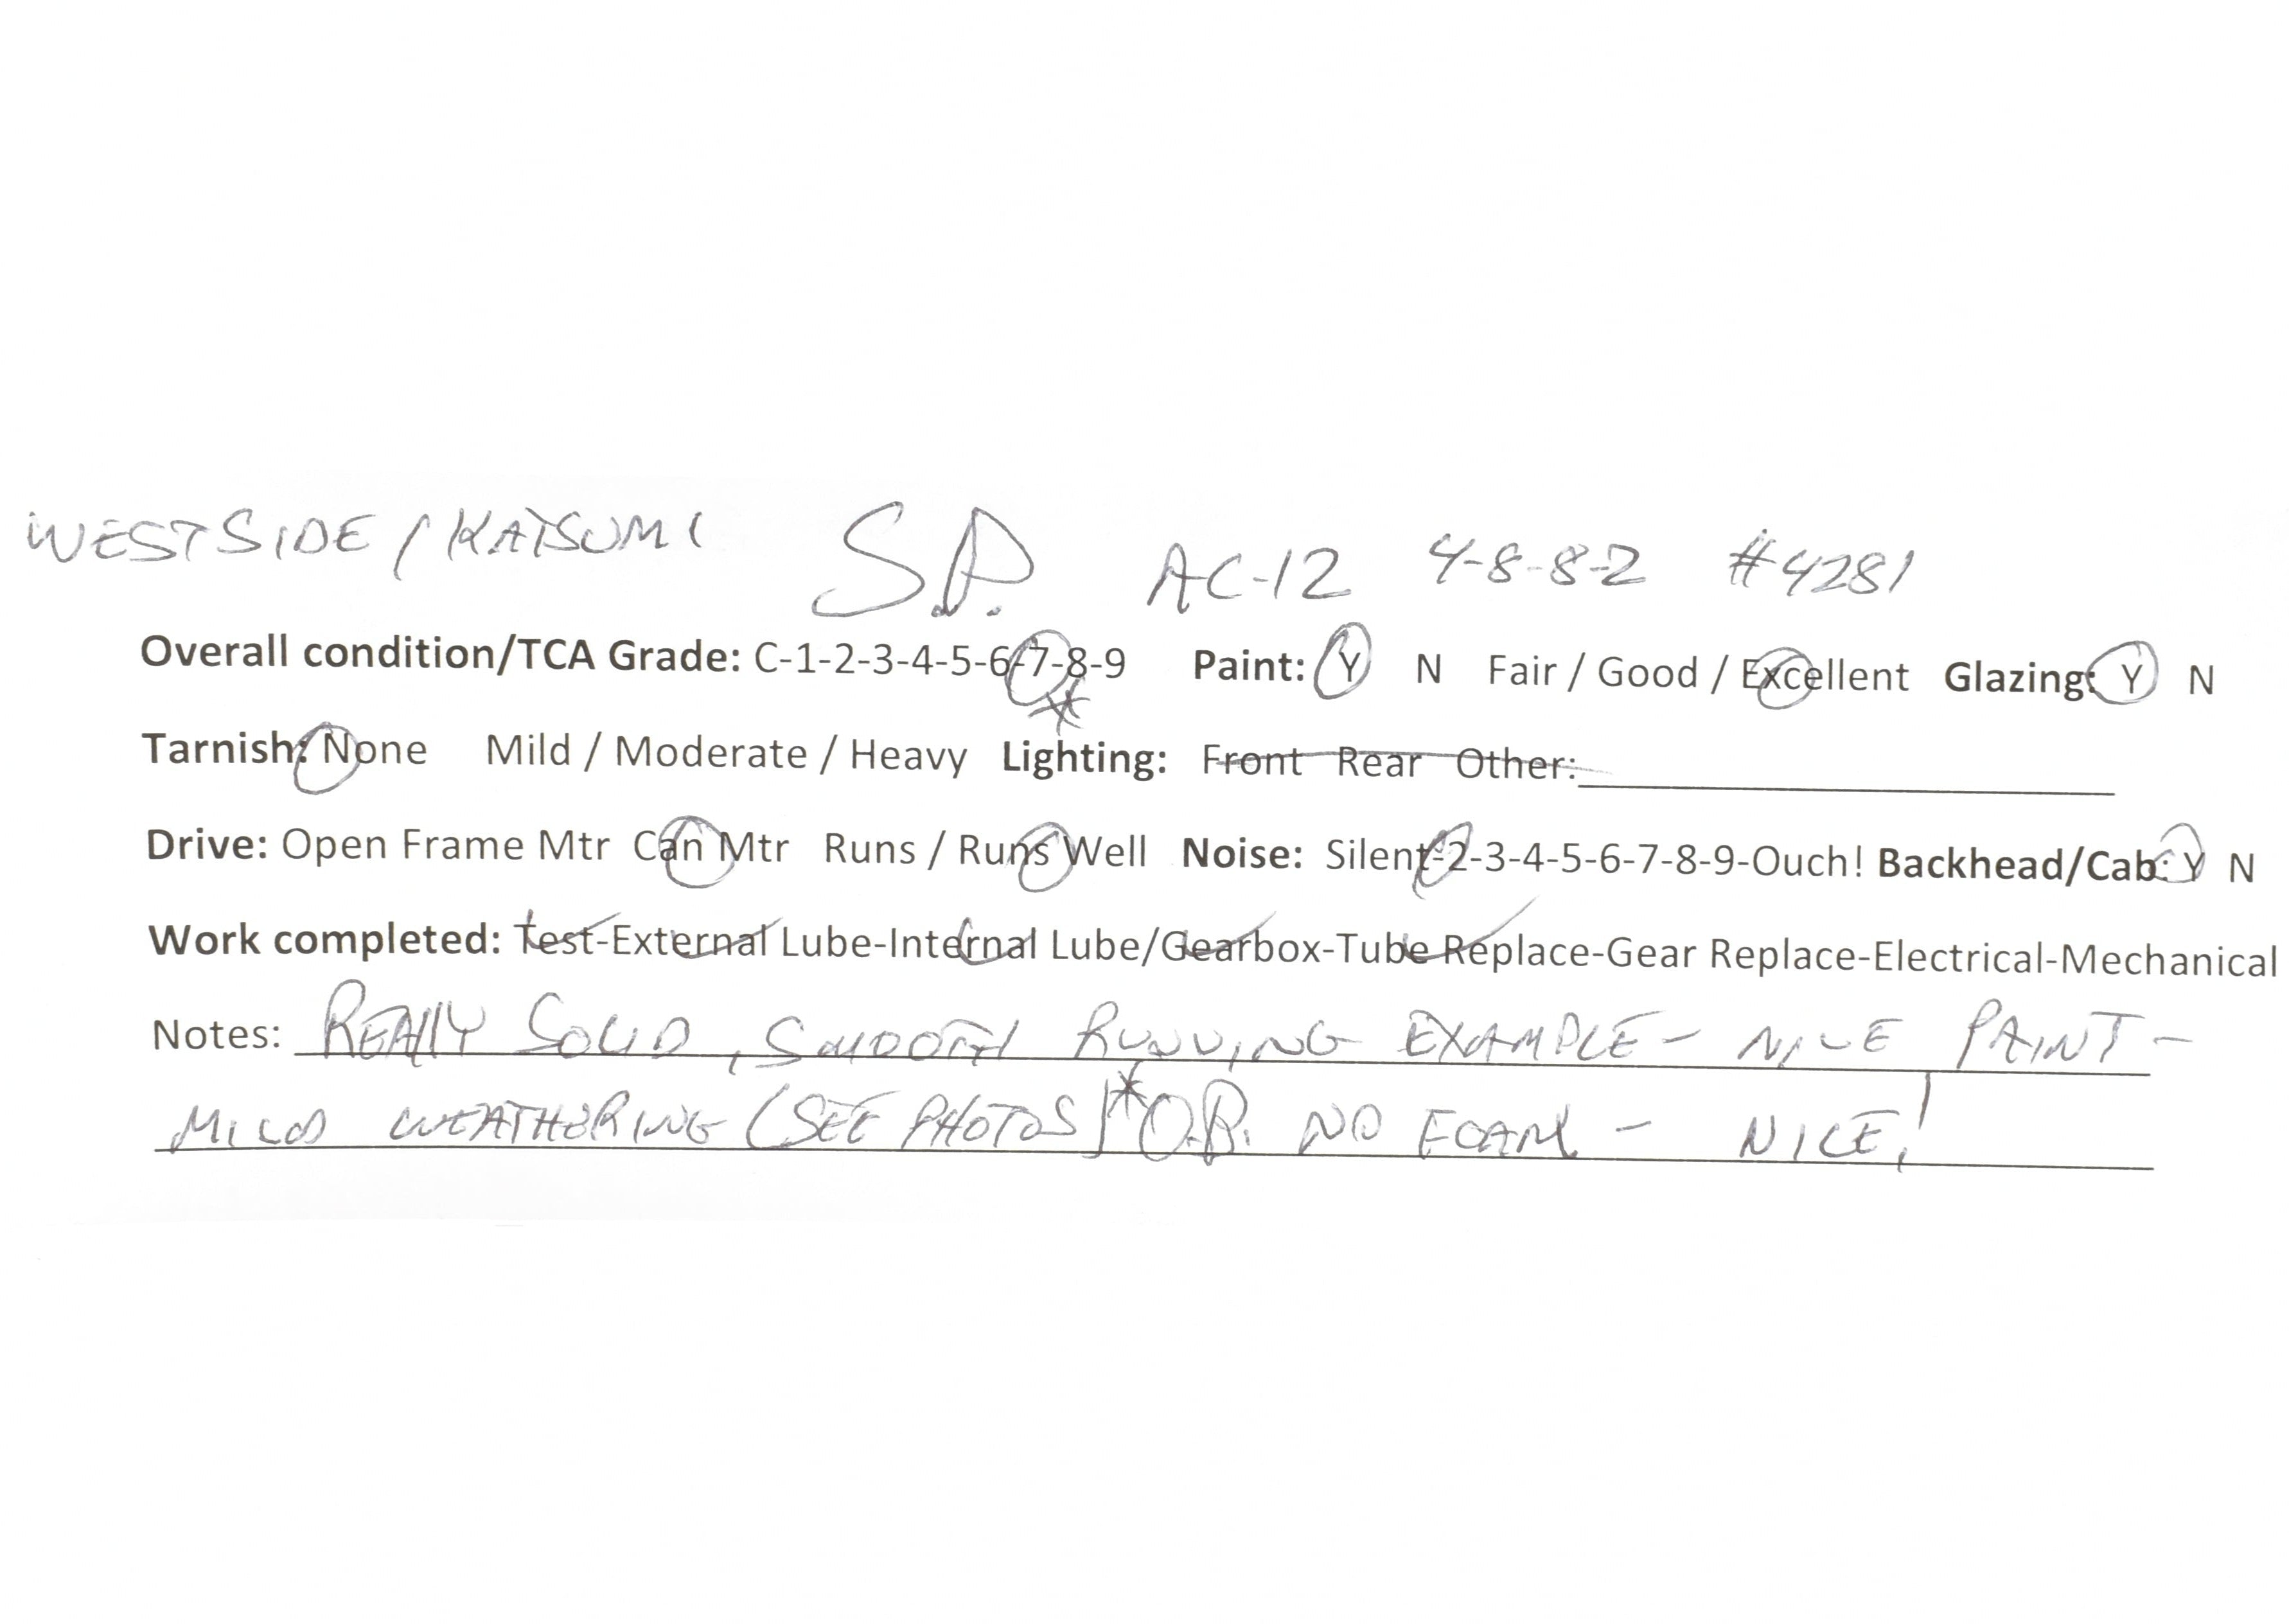 WESTSIDE / KATSUMI S.P. AC-12 4-8-8-2 #4281
Overall condition/TCA Grade: C-1-2-3-4-5-6-7-8-9 Paint: Y N Fair / Good / Excellent Glazing: Y N
*
Tarnish: None Mild / Moderate / Heavy Lighting: Front Rear Other:
Drive: Open Frame Mtr Can Mtr Runs / Runs Well Noise: Silent-2-3-4-5-6-7-8-9-Ouch! Backhead/Cab: Y N
Work completed: Test-External Lube-Internal Lube/Gearbox-Tube Replace-Gear Replace-Electrical-Mechanical
Notes: REALLY SOLID, SMOOTH RUNNING EXAMPLE - NICE PAINT -
MILD WEATHERING (SEE PHOTOS) *O.B. NO FOAM - NICE!